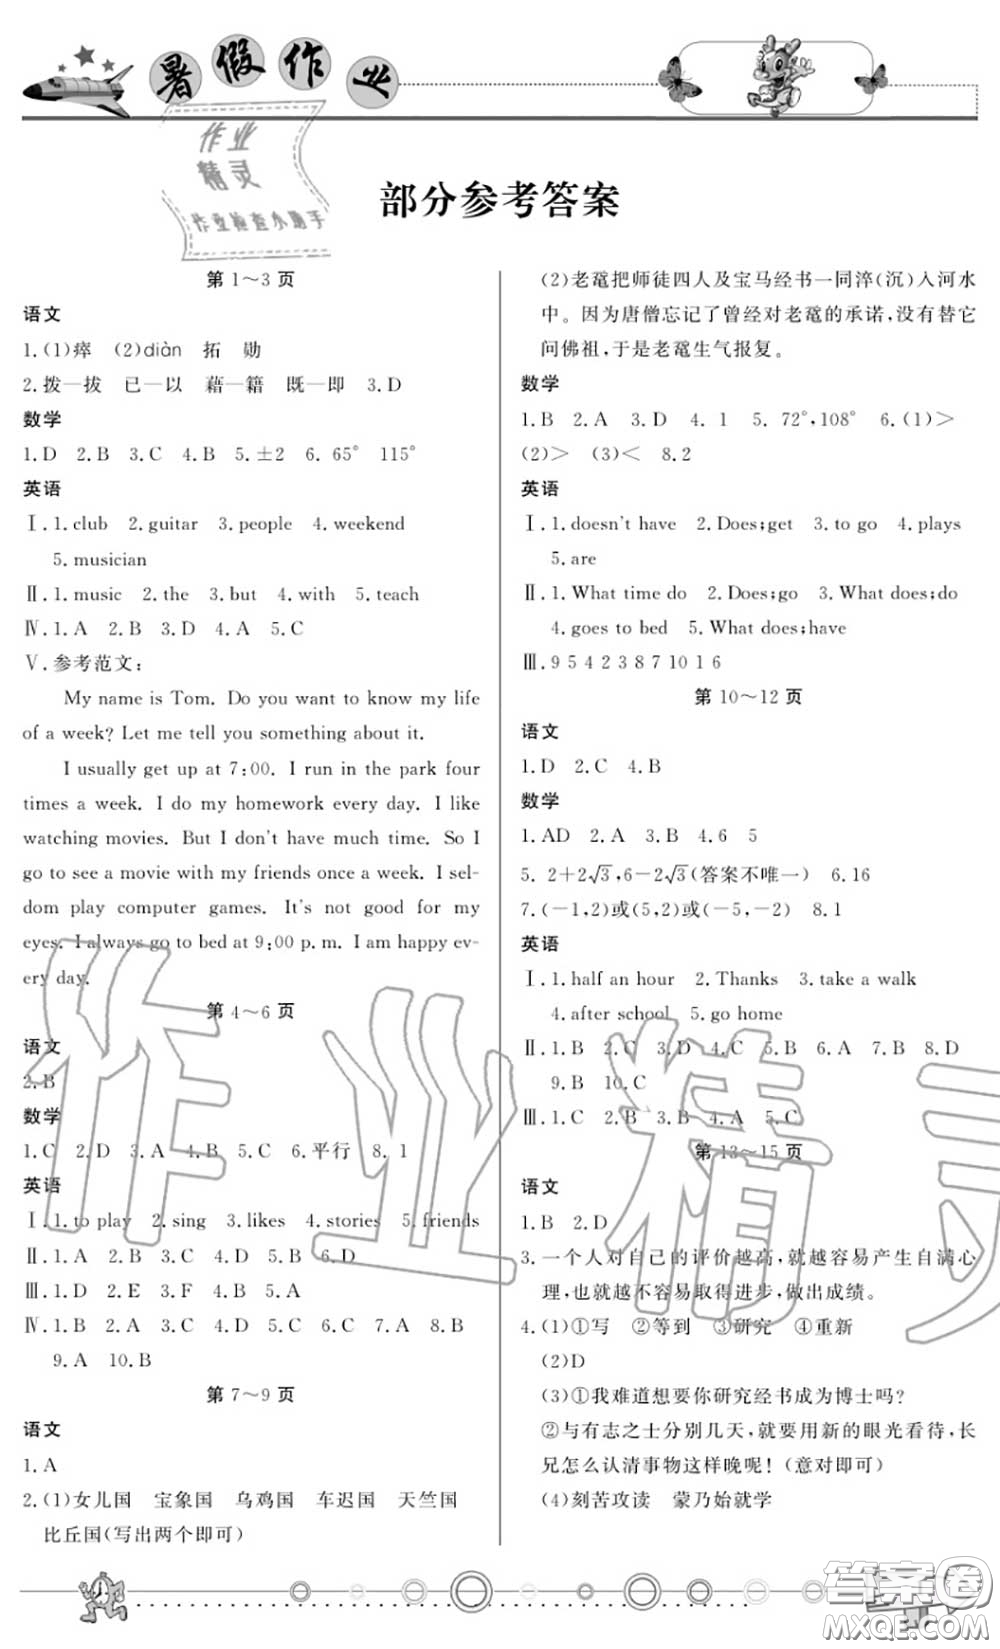 暑假作业
作业
精灵
作业检查小助手
部分参考答案
第 1～3 页
语文
1.(1)瘁  (2)diàn  拓  勋
2.拨—拔  已—以  藉—籍  既—即  3.D
数学
1.D  2.B  3.C  4.B  5.±2  6.65°  115°
英语
Ⅰ.1.club  2.guitar  3.people  4.weekend
5.musician
Ⅱ.1.music  2.the  3.but  4.with  5.teach
Ⅳ.1.A  2.B  3.D  4.A  5.C
Ⅴ.参考范文:
My name is Tom. Do you want to know my life
of a week? Let me tell you something about it.
I usually get up at 7:00. I run in the park four
times a week. I do my homework every day. I like
watching movies. But I don't have much time. So I
go to see a movie with my friends once a week. I sel-
dom play computer games. It's not good for my
eyes. I always go to bed at 9:00 p.m. I am happy ev-
ery day.
第 4～6 页
语文
2.B
数学
1.C  2.D  3.A  4.B  5.C  6.平行  8.1
英语
Ⅰ.1.to play  2.sing  3.likes  4.stories  5.friends
Ⅱ.1.A  2.B  3.C  4.D  5.B  6.D
Ⅲ.1.D  2.E  3.F  4.B  5.A
Ⅳ.1.B  2.A  3.C  4.D  5.C  6.C  7.A  8.B
9.A  10.B
第 7～9 页
语文
1.A
2.(1)女儿国  宝象国  乌鸡国  车迟国  天竺国
比丘国(写出两个即可)
(2)老鼋把师徒四人及宝马经书一同淬(沉)入河水
中。因为唐僧忘记了曾经对老鼋的承诺,没有替它
问佛祖,于是老鼋生气报复。
数学
1.B  2.A  3.D  4.1  5.72°,108°  6.(1)>
(2)>  (3)<  8.2
英语
Ⅰ.1.doesn't have  2.Does;get  3.to go  4.plays
5.are
Ⅱ.1.What time do  2.Does;go  3.What does;do
4.goes to bed  5.What does;have
Ⅲ.9 5 4 2 3 8 7 10 1 6
第 10～12 页
语文
1.D  2.C  4.B
数学
1.AD  2.A  3.B  4.6  5
5. 2+2√3,6−2√3(答案不唯一)  6.16
7.(−1,2)或(5,2)或(−5,−2)  8.1
英语
Ⅰ.1.half an hour  2.Thanks  3.take a walk
4.after school  5.go home
Ⅱ.1.B  2.C  3.D  4.C  5.B  6.A  7.B  8.D
9.B  10.C
Ⅲ.1.C  2.B  3.B  4.A  5.C
第 13～15 页
语文
1.B  2.D
3.一个人对自己的评价越高,就越容易产生自满心
理,也就越不容易取得进步,做出成绩。
4.(1)①写  ②等到  ③研究  ④重新
(2)D
(3)①我难道想要你研究经书成为博士吗?
②与有志之士分别几天,就要用新的眼光看待,长
兄怎么认清事物这样晚呢!(意对即可)
(4)刻苦攻读  蒙乃始就学
作业精灵
答案卷
MXQE.COM